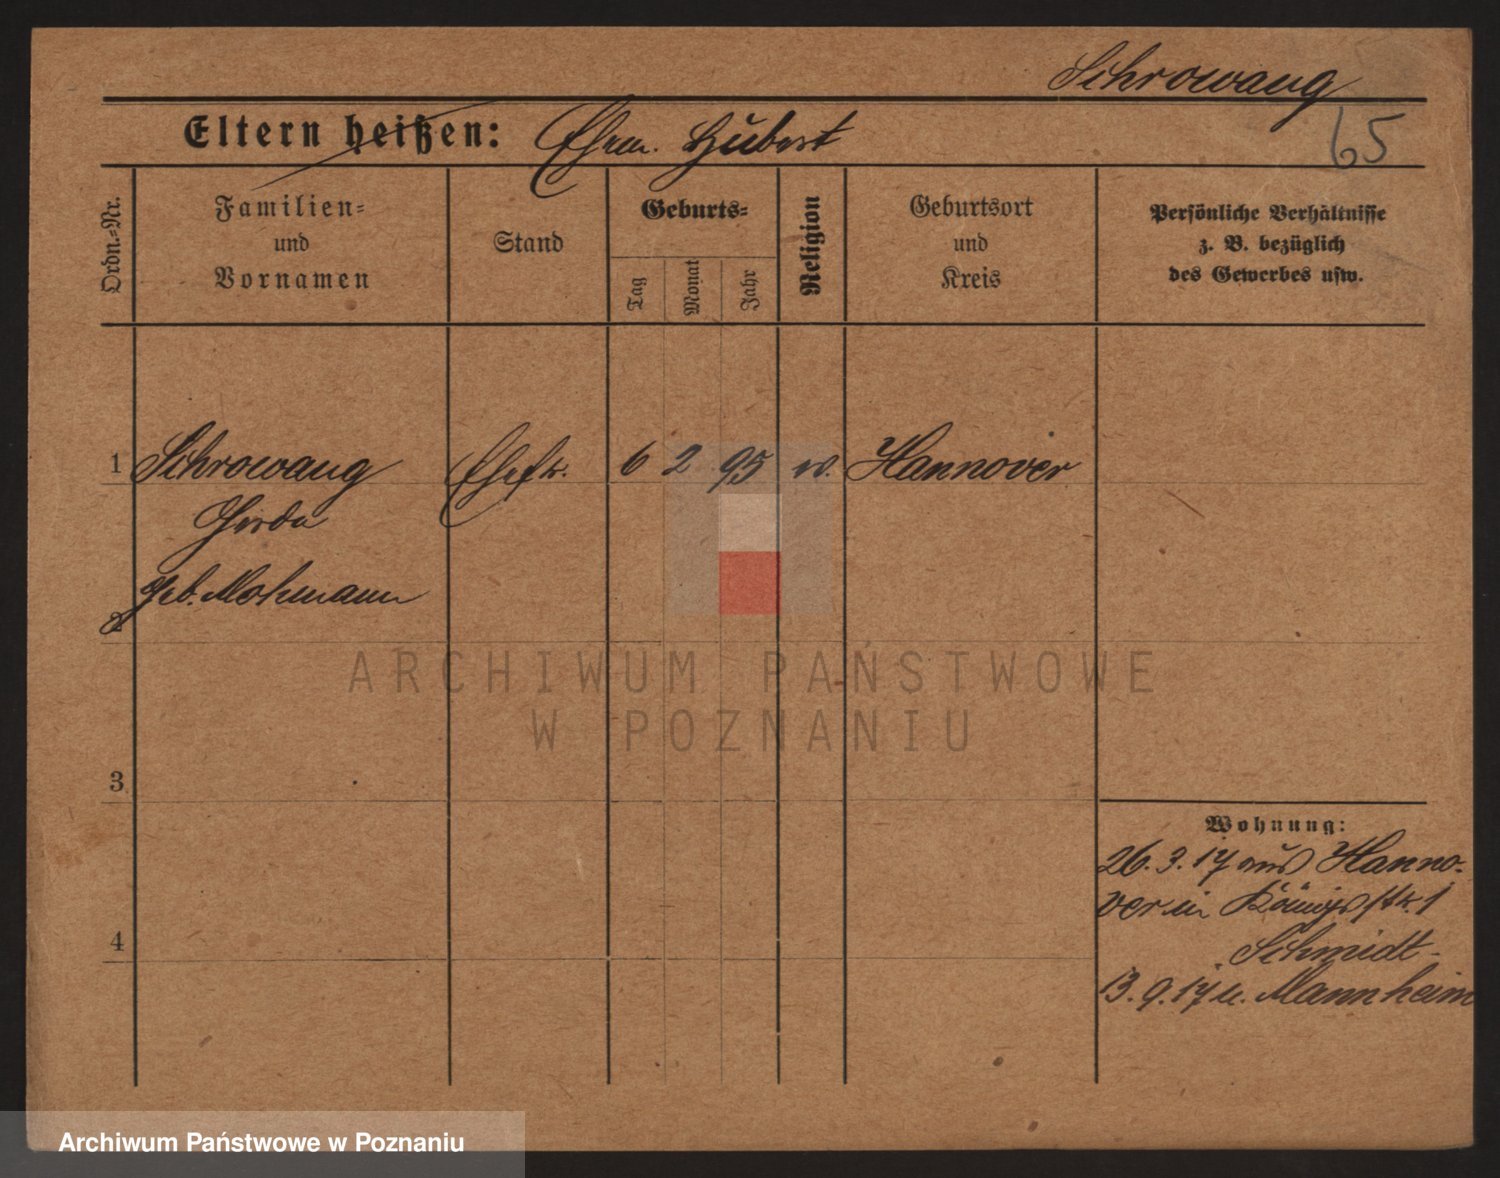 Schrowang
65
Eltern heißen: Ehem. Hubert
Ordn.-Nr.
Familien-
und
Vornamen
Stand
Geburts-
Tag
Monat
Jahr
Religion
Geburtsort
und
Kreis
Persönliche Verhältnisse
z. B. bezüglich
des Gewerbes usw.
1 Schrowang Ehefr. 6 2 95 ev. Hannover
Gerda
geb. Mohmann
2
3
4
Wohnung:
26. 3. 17 aus Hanno-
ver in Königstr. 1
Schmidt
13. 9. 17 n. Mannheim
ARCHIWUM PAŃSTWOWE
W POZNANIU
Archiwum Państwowe w Poznaniu